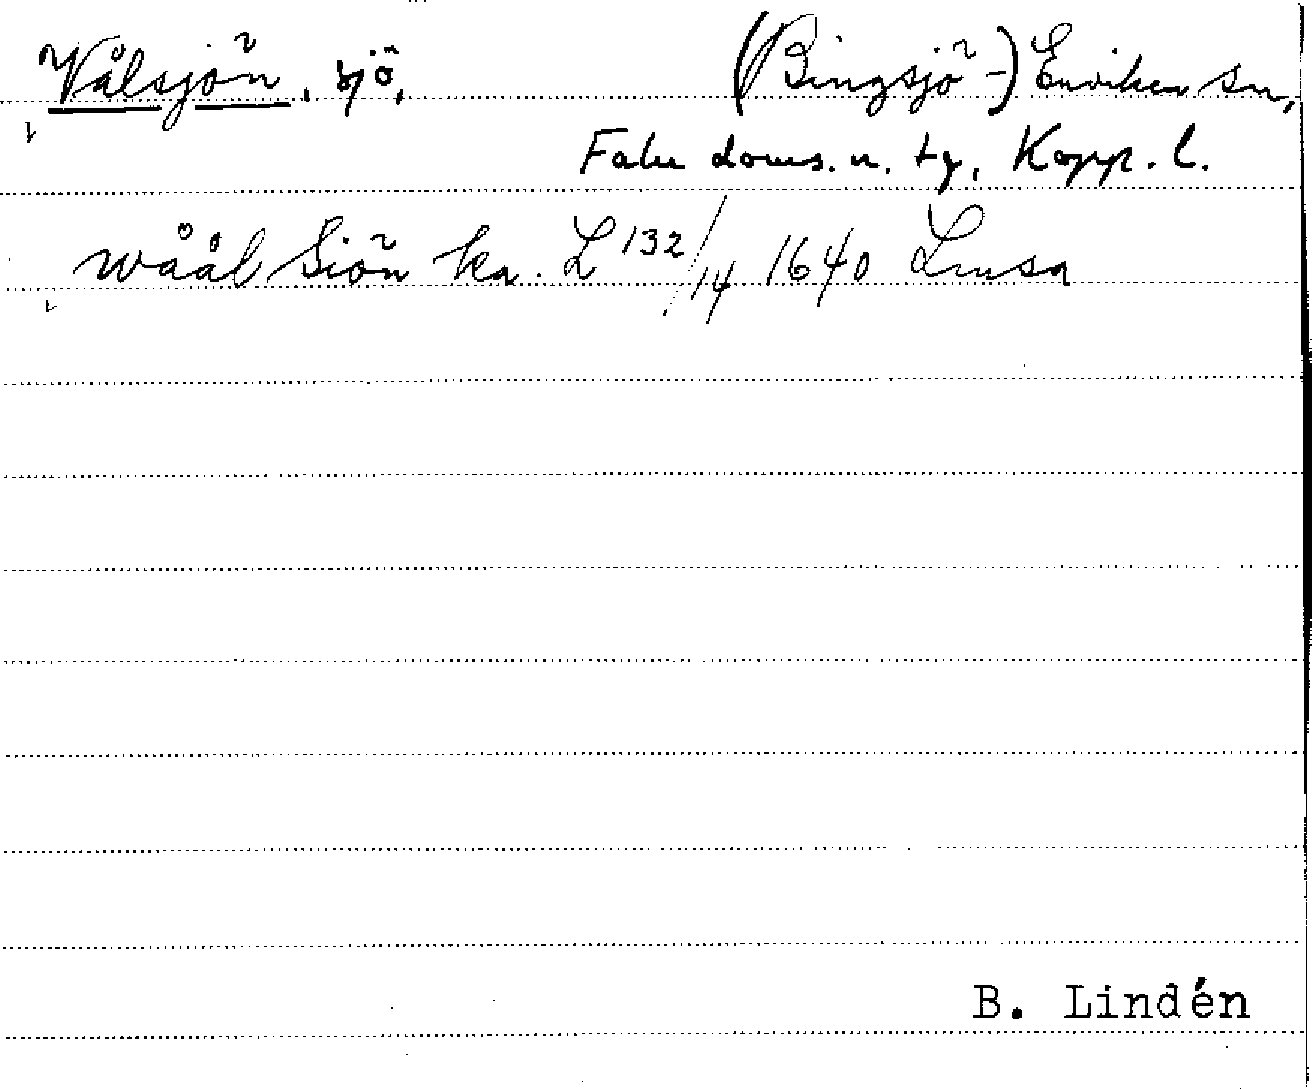 Vålsjön, sjö, (Bingsjö-) Enviken sn,
Falu doms. n. tg, Kopp. l.
wåål Siön ka. L 132/14 1640 Lmsa
B. Lindén